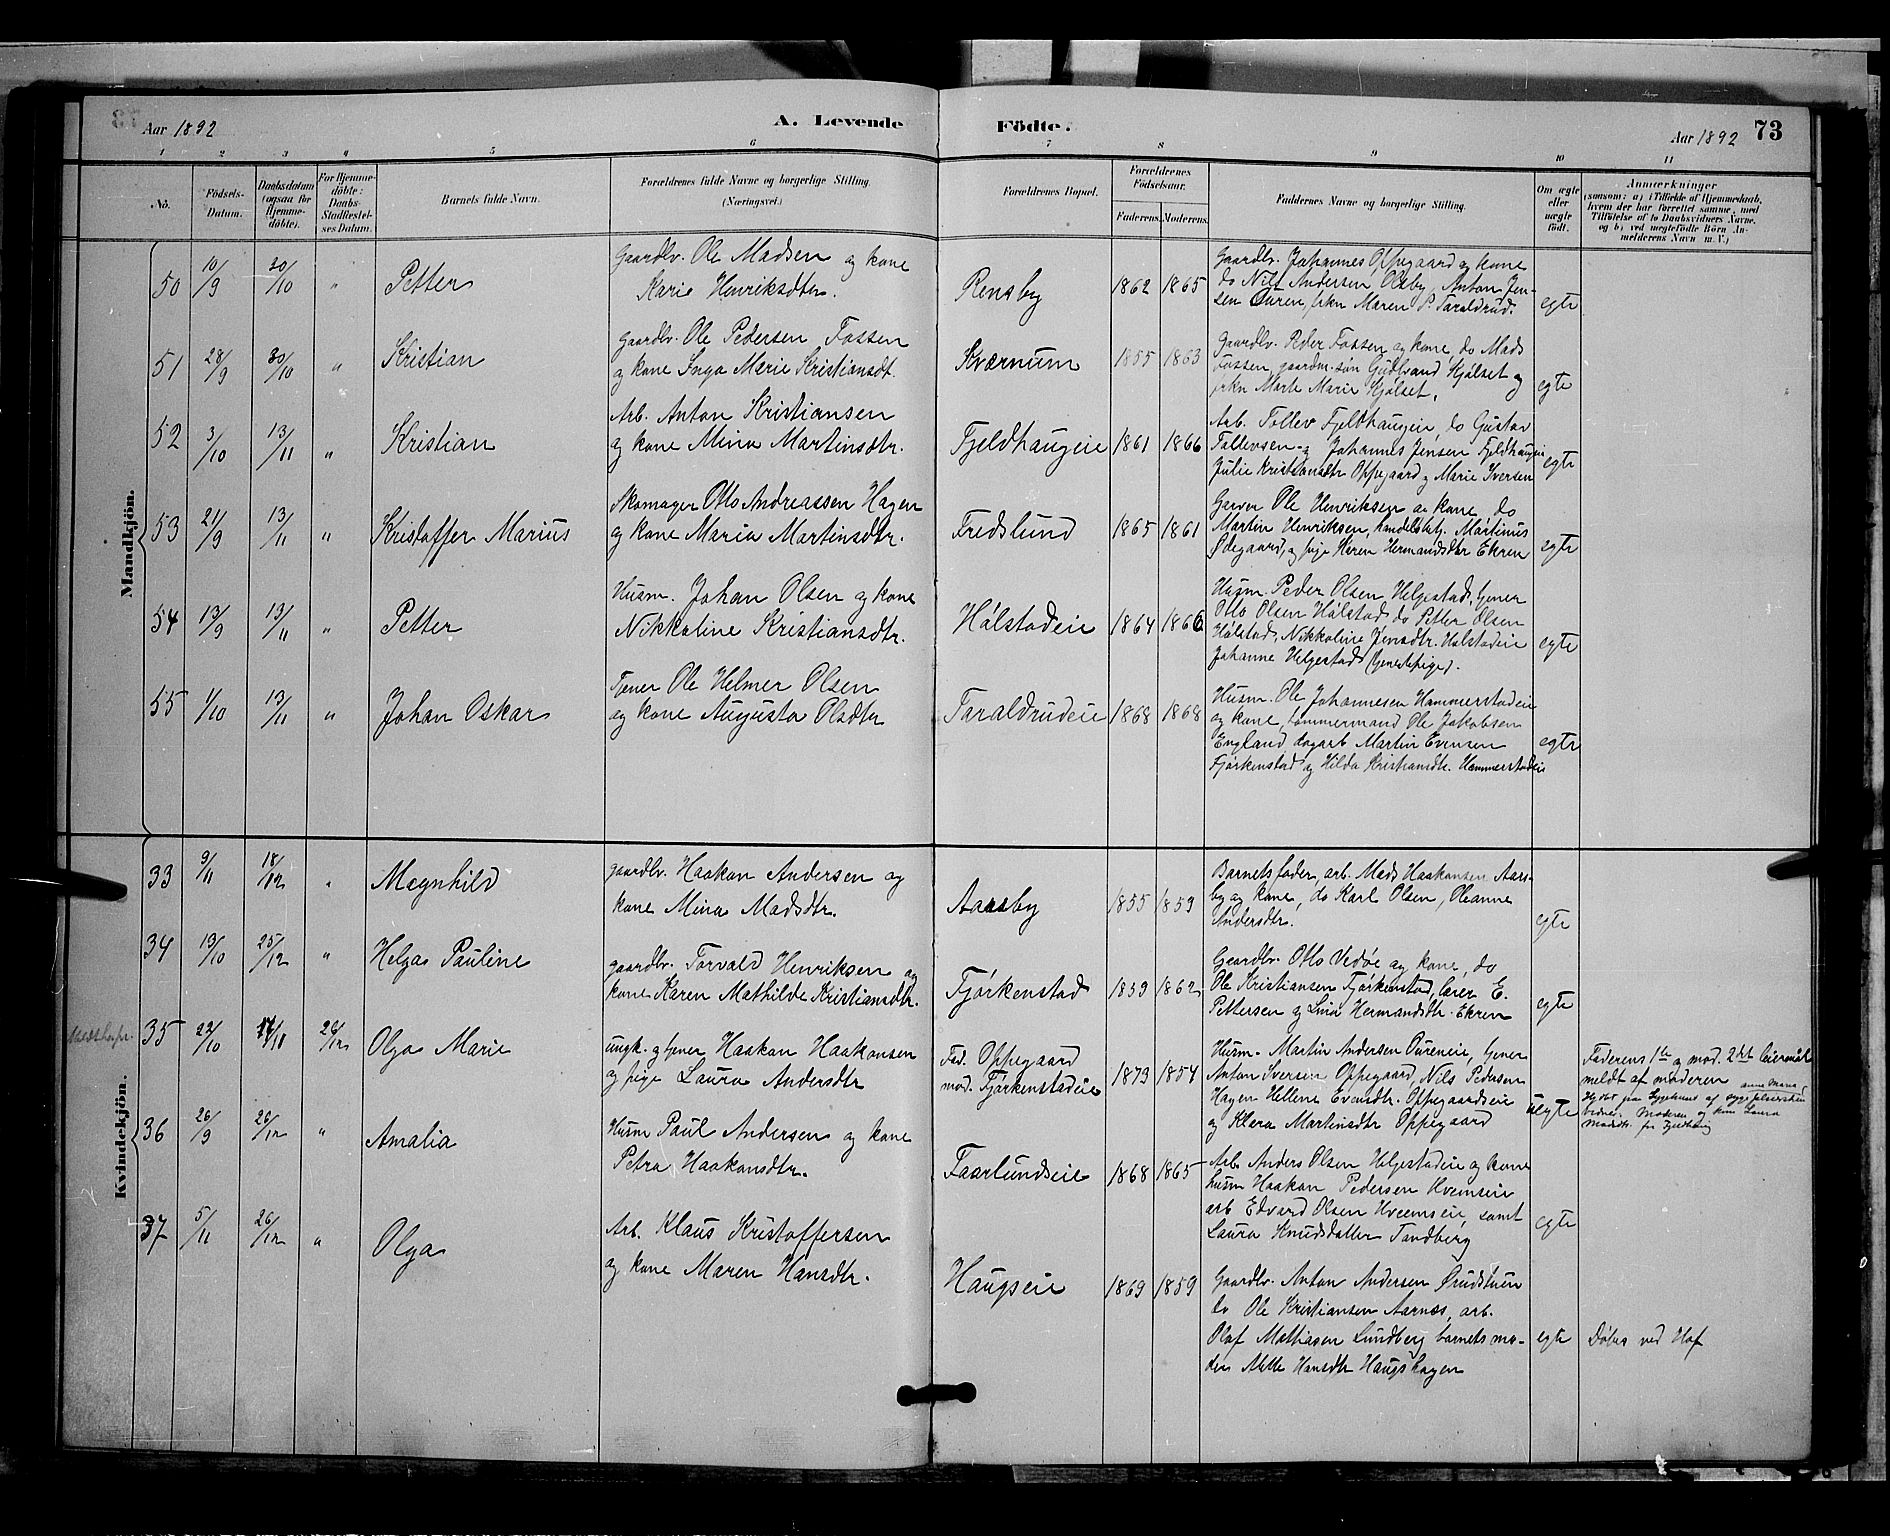 Aar 1892
A. Levende
Födte.
Aar 1892
73
1 2 3 4 5 6 7 8 9 10 11
No.
Födsels-
Datum.
Daabsdatum
(ogsaa for
Hjemme-
döbte).
For Hjemme-
döbte:
Daabs-
Stadfæstel-
ses Datum.
Barnets fulde Navn.
Forældrenes fulde Navne og borgerlige Stilling.
(Næringsvei.)
Forældrenes Bopæl.
Forældrenes
Födselsaar.
Faderens. Moderens.
Faddernes Navne og borgerlige Stilling.
Om ægte
eller
uægte
födt.
Anmærkninger
(saasom: a) i Tilfælde af Hjemmedaab,
hvem der har forrettet samme, med
Tilföielse af to Daabsvidners Navne,
og b) ved uægtefödte Börn An-
melderens Navn m. V.)
Mandkjön.
50 10/9 30/10 " Petter
Gaardbr. Ole Madsen og kone
Karie Henriksdtr.
Rensby 1862 1865
Gaardbr. Johannes Oppegaard og kone
do Nils Andersen Olsby, Anton Jen-
sen Ouren, frkn Maren P. Taraldrud.
egte
51 28/9 30/10 " Kristian
Gaardbr. Ole Pedersen Fossen
og kone Inga Marie Kristiansdt.
Kværnum 1855 1863
Gaardbr. Peder Fossen og kone, do Mads
Fossen, gaardm. søn Gudbrand Kjølset og
frkn Marte Marie Kjølset.
egte
52 3/10 13/11 " Kristian
Arb. Anton Kristiansen
og kone Mina Martinsdtr.
Fjeldhaugeie 1861 1866
Arb. Tollev Fjeldhaugeie, do Gustav
Tollevsen og Johannes Jensen Fjeldhaugeie
Julie Kristiansdtr Oppegaard og Marie Iversen
egte
53 21/9 13/11 " Kristoffer Marius
Skomager Otto Andreassen Hagen
og kone Maria Martinsdtr.
Fredslund 1865 1861
Garver Ole Henriksen og kone, do
Martin Henriksen, handelsbetj. Martinius
Ødegaard, og pige Karen Hermandsdtr Ekren
egte
54 13/9 13/11 " Petter
Husm. Johan Olsen og kone
Nikkoline Kristiansdtr.
Hólstadeie 1864 1866
Husm Peder Olsen Helgestad, tjener
Otto Olsen Hólstad, do Petter Olsen
Hólstad, Nikkoline Jensdtr. Hólstadeie
Johanne Helgestad (tjenestepige).
egte
55 1/10 13/11 " Johan Oskar
Tjener Ole Helmer Olsen
og kone Augusta Olsdtr
Taraldrudeie 1868 1868
Husm. Ole Johannesen Hammerstadeie
og kone, tømmermand Ole Jakobsen
England, dagarb Martin Evensen
Fjørkenstad og Hilda Kristiansdtr. Hammerstadeie
egte
Kvindekjön.
33 9/11 18/12 " Magnhild
gaardbr. Haakon Andersen og
kone Mina Madsdtr.
Aasby 1855 1859
Barnets fader, arb. Mads Haakonsen Aars-
by og kone, do Karl Olsen, Oleanne
Andersdtr.
egte
34 13/10 25/12 " Helga Pauline
gaardbr. Torvald Henriksen og
kone Karen Mathilde Kristiansdtr.
Fjórkenstad 1859 1862
Gaardbr. Otto Vedøe og kone, do
Ole Kristiansen Fjørkenstad, lærer E.
Pettersen og Lina Hermandsdtr. Ekren
egte
35 22/10 26/12 Olga Marie
ungk. og tjener Haakon Haakonsen
og pige Laura Andersdtr
Fad. Oppegaard
mod. Fjórkenstadeie 1873 1854
Husm. Martin Andersen Oureneie, tjener
Anton Iversen Oppegaard, Nils Pedersen
Hagen Hellene Evensdtr. Oppegaardseie
og Klara Martinsdtr Oppegaard
uegte
Faderens 1ste og mod. 2det leiermål
meldt af moderen
36 26/9 26/12 " Amalia
Husm Paul Andersen og kone
Petra Haakonsdtr.
Faarlundseie 1868 1865
Arb. Anders Olsen Helgestadeie og kone
husm Haakon Pedersen Hvemseie
arb Edvard Olsen Hveemseie, samt
Laura Knudsdatter Tandberg
egte
37 5/11 26/12 " Olga
Arb. Klaus Kristoffersen
og kone Maren Hansdtr.
Haugseie 1869 1859
Gaardbr. Anton Andersen
do Ole Kristiansen Aarnæs, arb.
Olaf Mathiasen Lundberg barnets mo-
der, Mette Hansdtr Haugshagen
egte
Døbes ved Hof